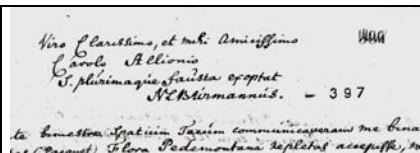 Viro Clarissimo, et mihi Amicissimo
Carolo Allionio
S. plurimaque fausta exoptat
NLBurmannus. - 397
te bimestre spatium Tecum communicaveram me
Flora Pedemontana repletas accepisse,